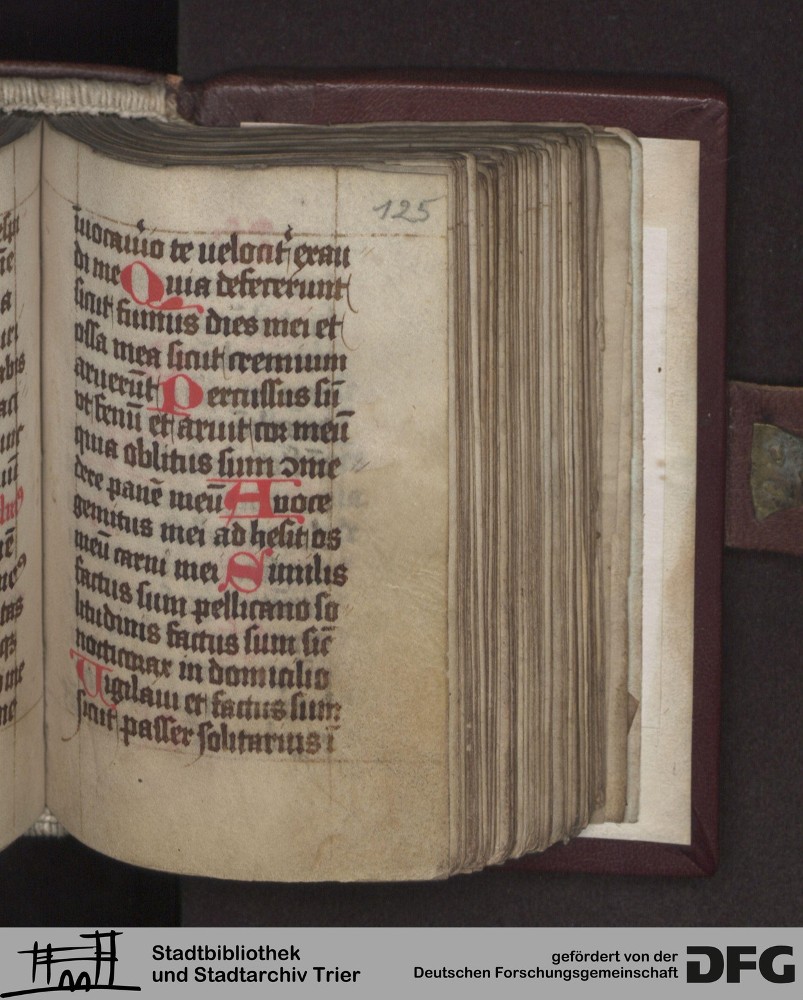 125
īuocauĩo te uelocit᾿ exau
di me Quia defecerunt
sicut fumus dies mei et
ossa mea sicut cremium
aruerūt Percussus sū
vt fenū et aruit cor meū
quia oblitus sum ꝯme
dere panē meū A uoce
gemitus mei adhesit os
meū carni mei Similis
factus sum pellicano so
litudinis factus sum sic̄
nocticorax in domicilio
Uigilaui et factus sum
sicut passer solitarius ī
Stadtbibliothek
und Stadtarchiv Trier
gefördert von der
Deutschen Forschungsgemeinschaft
DFG